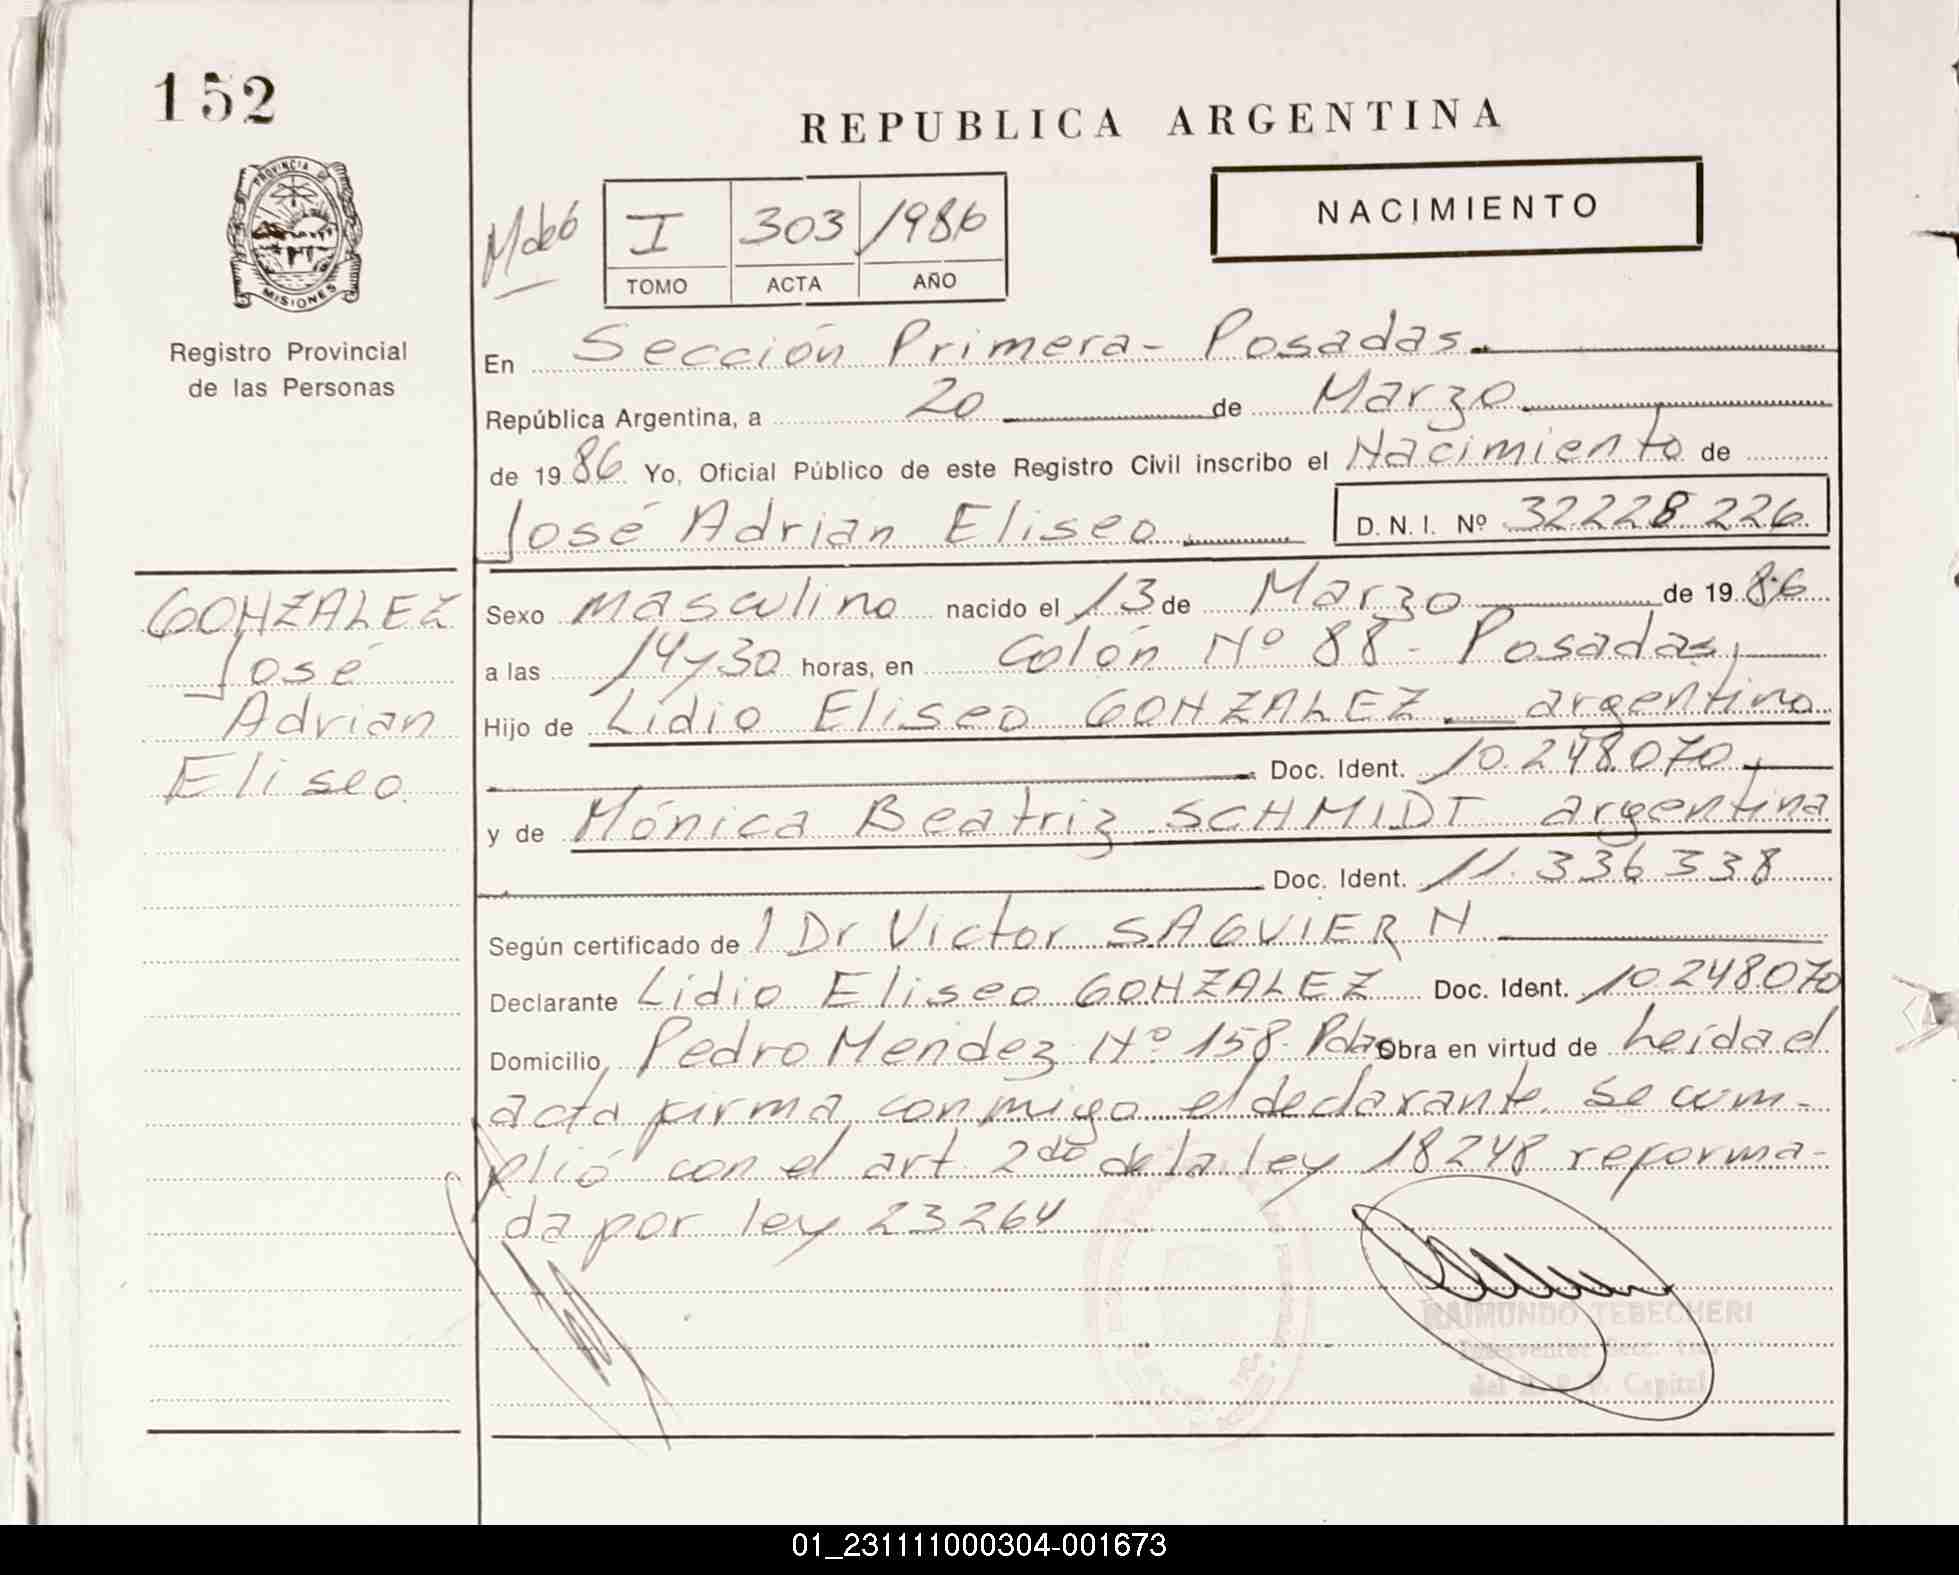 152
REPUBLICA ARGENTINA
PROVINCIA DE
MISIONES
Registro Provincial
de las Personas
I 303 1986
TOMO ACTA AÑO
NACIMIENTO
En Sección Primera - Posadas
República Argentina, a 20 de Marzo
de 1986 Yo, Oficial Público de este Registro Civil inscribo el Nacimiento de
José Adrian Eliseo D. N. I. Nº 32228 226
GONZALEZ
José
Adrian
Eliseo.
Sexo masculino nacido el 13 de Marzo de 1986
a las 14 y 30 horas, en Colón Nº 88 - Posadas,
Hijo de Lidio Eliseo GONZALEZ argentino
Doc. Ident. 10.248.070,
y de Mónica Beatriz SCHMIDT argentina
Doc. Ident. 11.336 338
Según certificado de l Dr Victor SAGUIER N
Declarante Lidio Eliseo GONZALEZ Doc. Ident. 10.248070
Domicilio Pedro Mendez Nº 158 - Pdas Obra en virtud de Leída el
acta firma conmigo el declarante. Se cum-
plió con el art. 2do de la ley 18248 reforma-
da por ley 23264
RAIMUNDO TEBECHERI
Interventor Secc.
Capital
01_231111000304-001673